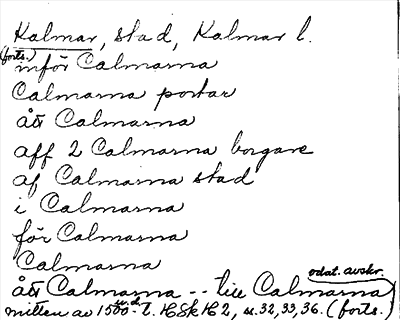 Kalmar, stad, Kalmar l.
(forts.)
inför Calmarna
Calmarna portar
åt Calmarna
aff 2 Calmarna borgare
af Calmarna stad
i Calmarna
för Calmarna
Calmarna
odat. avskr.
åt Calmarna -- till Calmarna
mitten av 1500-t. HSkH 2, s. 32, 33, 36. (forts.)